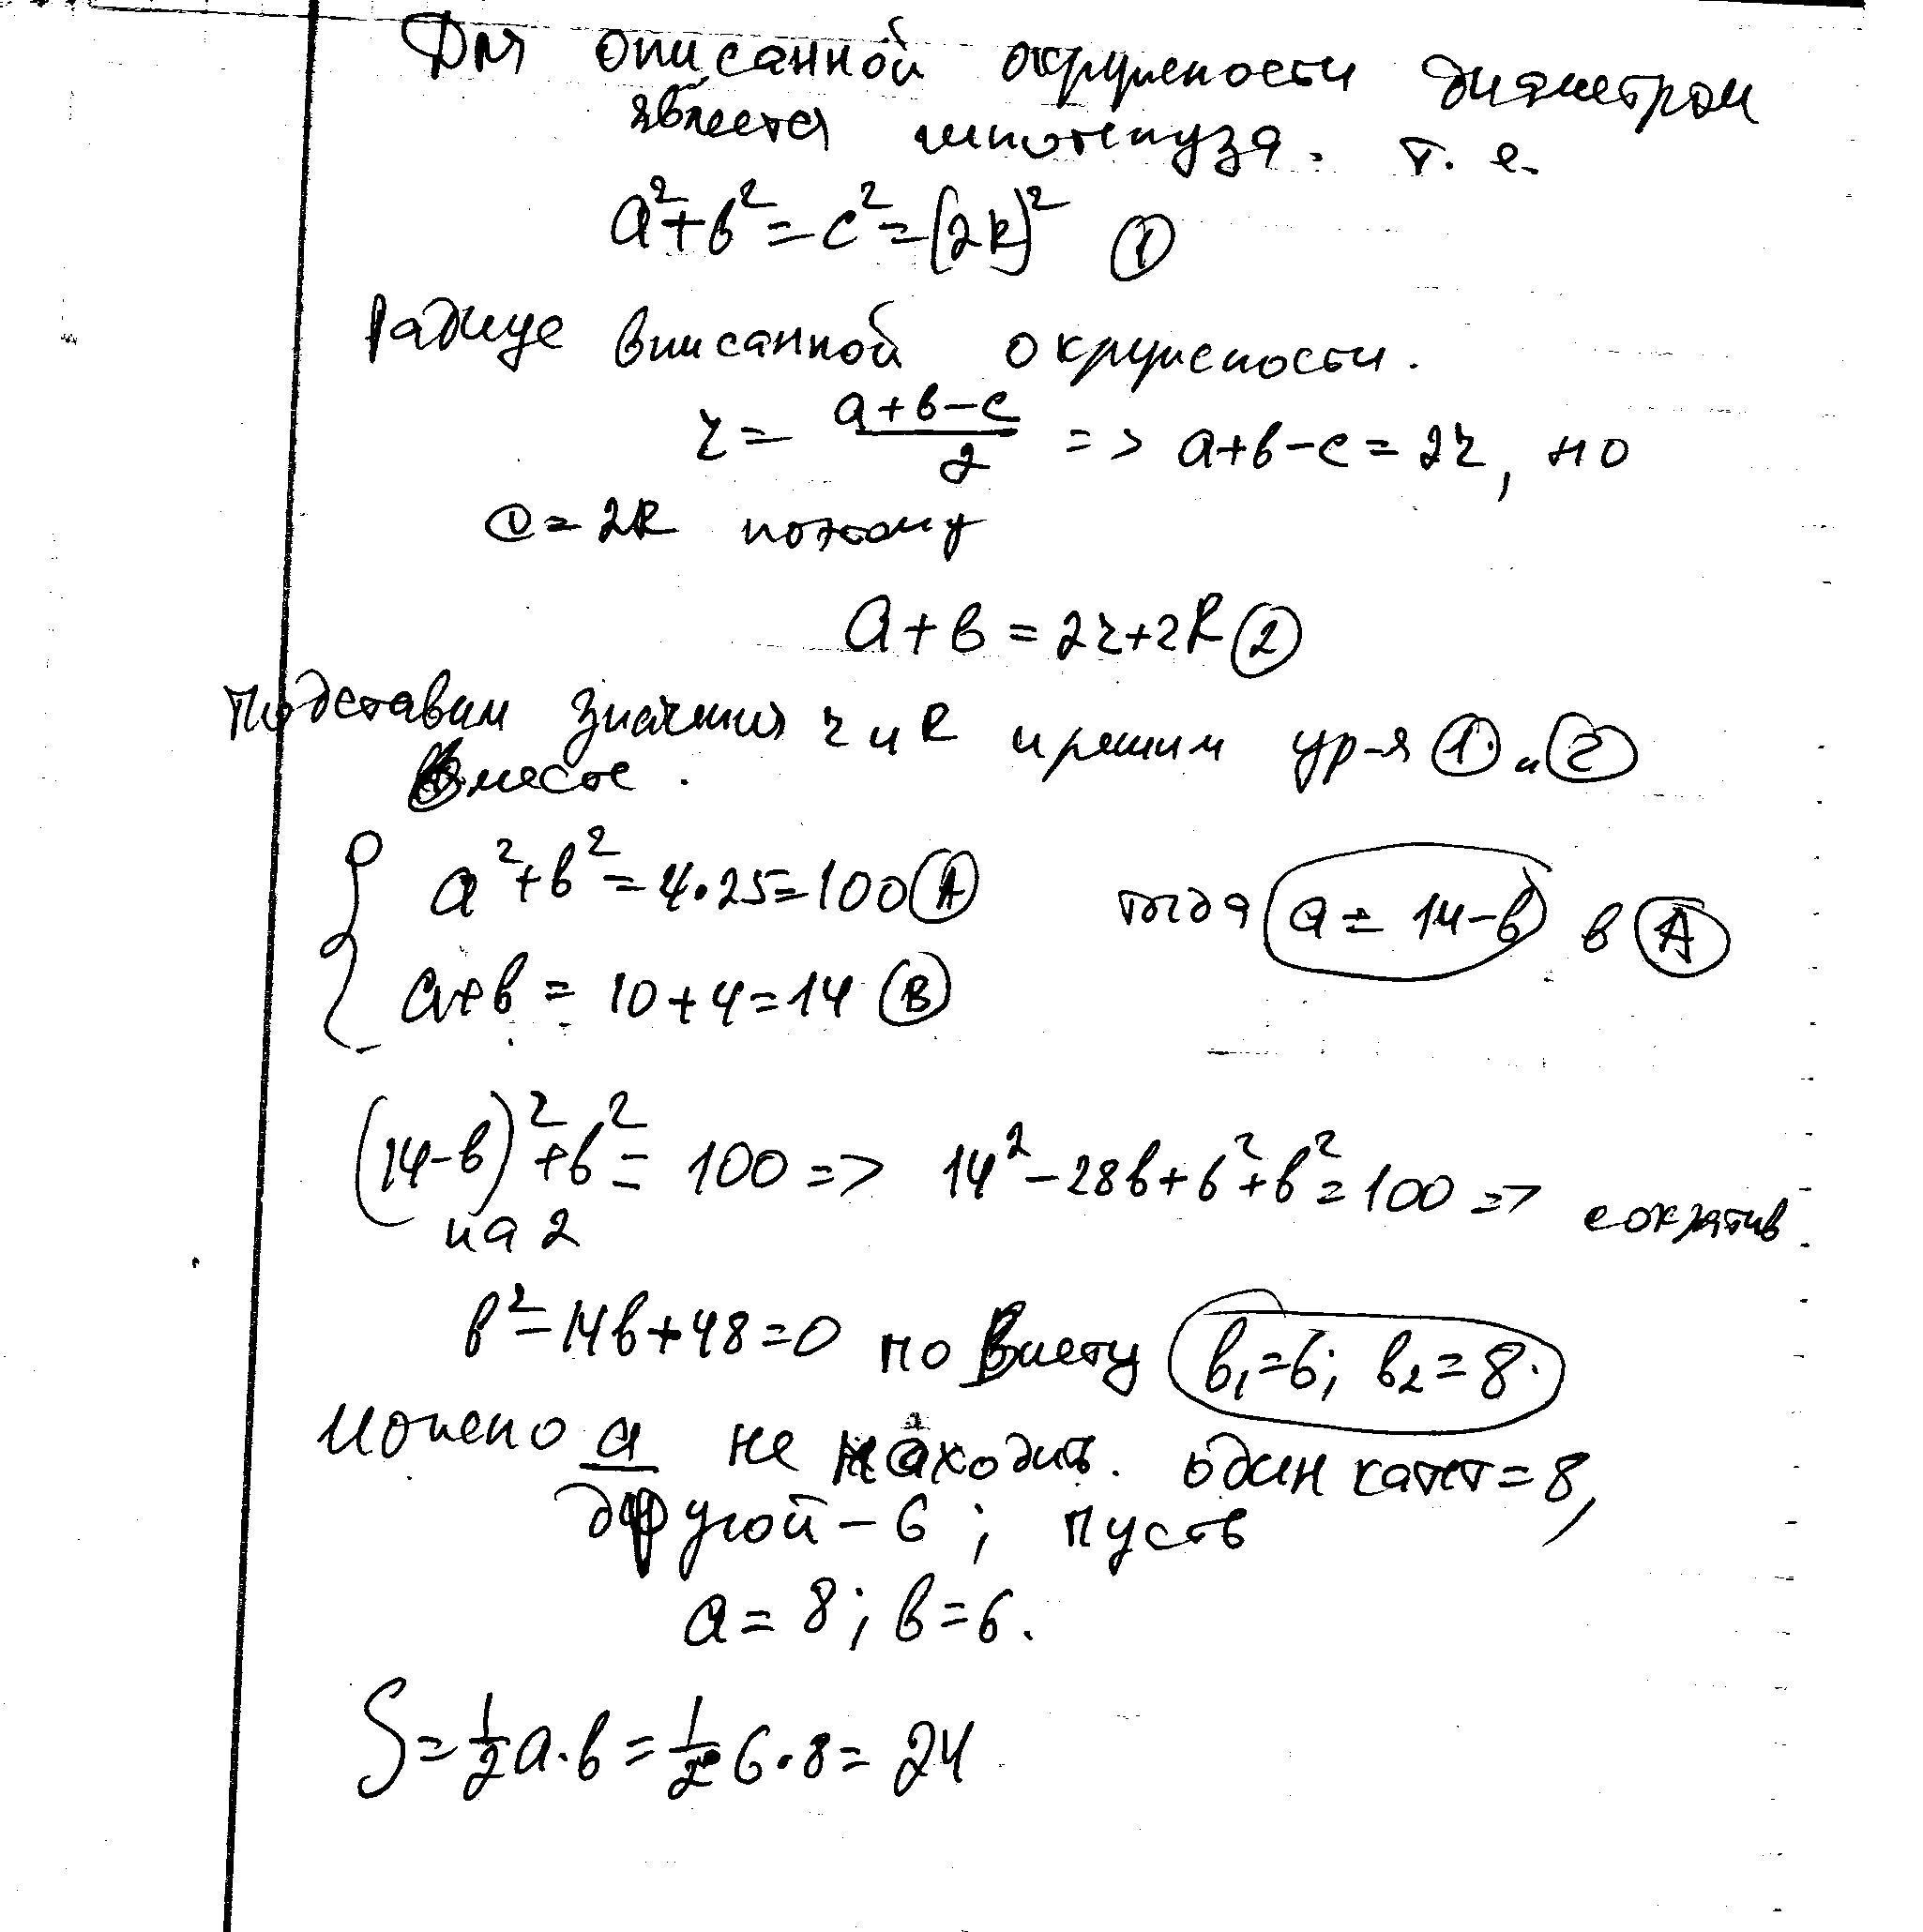 Для описанной окружности диаметром
является гипотенуза. т. е.
a²+b²=c²=(2R)² ①
Радиус вписанной окружности.
r = (a+b-c)/2 => a+b-c=2r, но
c=2R поэтому
a+b=2r+2R ②
Подставим значения r и R и решим ур-я ① и ②
вместе.
{ a²+b²=4·25=100 Ⓐ тогда a=14-b в Ⓐ
a+b=10+4=14 Ⓑ
(14-b)²+b²=100 => 14²-28b+b²+b²=100 => сократив
на 2
b²-14b+48=0 по Виету b₁=6; b₂=8.
Можно a не находить. один катет=8,
другой-6; пусть
a=8; b=6.
S=1/2 a·b=1/2·6·8=24